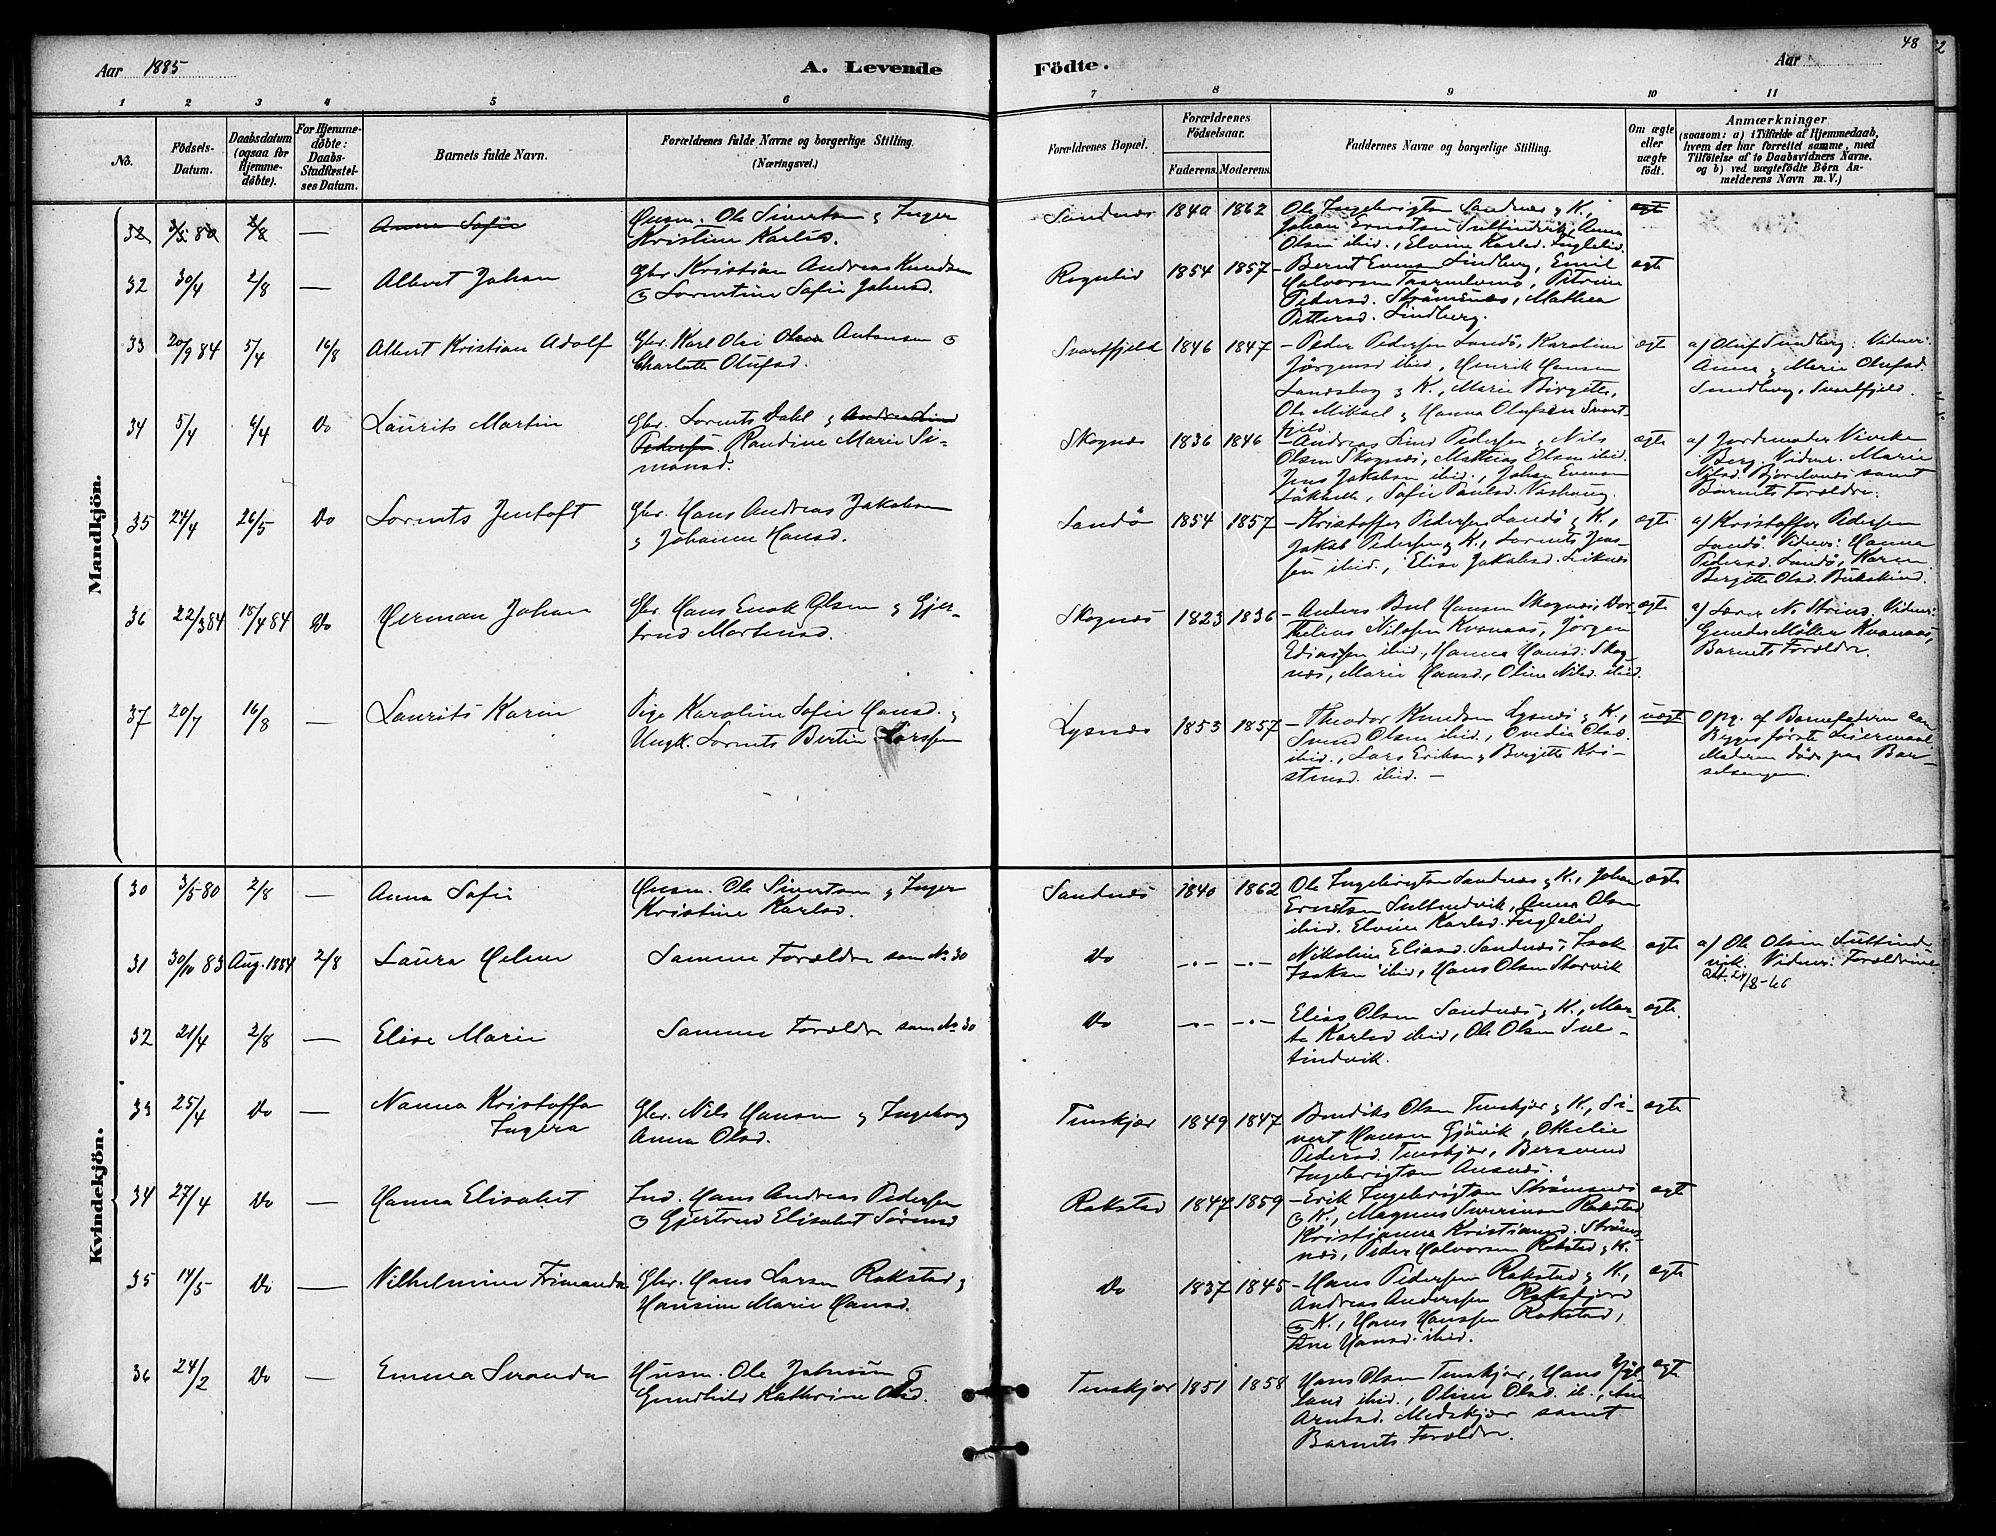 48
Aar 1885
A. Levende
Födte.
Aar
1 2 3 4 5 6 7 8 9 10 11
No.
Födsels-
Datum.
Daabsdatum
(ogsaa for
Hjemme-
döbte).
For Hjemme-
döbte:
Daabs-
Stadfæstel-
ses Datum.
Barnets fulde Navn.
Forældrenes fulde Navne og borgerlige Stilling.
(Næringsvei.)
Forældrenes Bopæl.
Forældrenes
Födselsaar.
Faderens. Moderens.
Faddernes Navne og borgerlige Stilling.
Om ægte
eller
uægte
født.
Anmærkninger
(saasom: a) i Tilfælde af Hjemmedaab,
hvem der har forrettet samme, med
Tilföielse af to Daabsvidners Navne.
og b) ved uægtefödte Börn An-
melderens Navn m. V.)
Mandkjön.
32 3/5 80 2/8 — Anna Sofie
Husm. Ole Sivertsen og Inger
Kristine Karlsd.
Sandnæs 1840 1862
Ole Ingebrigtsen Sandnæs og K.,
Johan Ernstsen Sultindvik, Anna
Olsen ibid., Elvine Karlsd. Fuglelid
ægte
32 30/4 2/8 — Albert Johan
Gbr. Kristian Andreas Knudsen
og Lorentine Sofie Johnsd.
Rognlid 1854 1857
— Bernt Evensen Lindberg, Emil
Halvorsen Petrine
Pedersd. Strömsnæs, Mathea
Pettersd. Lindberg.
ægte
33 20/9 84 5/4 16/8 Albert Kristian Adolf
Gbr. Karl Olai Olsen Antonsen og
Charlotte Olufsd.
Svartfjeld 1846 1847
— Peder Pedersen Sandö, Karoline
Jörgensd ibid, Henrik Hansen
Landsbog og K., Marie Birgette,
Ole Mikael og Hanna Olufsen Svart-
fjeld
ægte
a) Oluf Sundberg: Vidner:
Anna og Marie Olufsd.
Sundberg, Svartfjeld.
34 5/4 6/4 Do Laurits Martin
Gbr. Lorents Dahl og Andreas Lind
Pedersen Randine Marie Si-
monsd.
Skognæs 1836 1846
— Andreas Lind Pedersen og Nils
Olsen Skognæs, Mathias Olsen ibid.
Jens Jakobsen ibid., Johan Evensen
Sofie Paulsd.
ægte
a) Jordemoder Vivike
Berg. Vidner. Marie
Nilsd. Bjorelvnæs samt
Barnets Forældre.
35 24/4 26/5 Do Lorents Jentoft
Gbr. Hans Andreas Jakobsen
og Johanne Hansd.
Sandö 1854 1857
— Kristoffer Pedersen Sandö og K.,
Jakob Pedersen og K., Lorents Jens-
sen ibid., Elise Jakobsd. Leiknes
ægte
a) Kristoffer Pedersen
Sandö. Vidner: Hanna
Pedersd. Sandö, Karen
Bergitte Olsd. Bukskind.
36 22/3 84 15/4 84 Do Herman Johan
Gbr. Hans Enok Olsen og Gjer-
trud Mortensd.
Skognæs 1823 1836
— Anders Bul Hansen Skognæs, Dor-
thelius Nilssen Kvanaas, Jörgen
Ediassen ibid, Hanna Hansd. Skog-
næs, Marie Hansd., Oline Nilsd. ibid.
ægte
a) Lærer N. Strind. Vidner:
Gunder Möller Kvanaas,
Barnets Forældre.
37 20/7 16/8 — Laurits Karin
Pige Karoline Sofie Hansd. og
Ungk. Lorents Bertin Larssen
Lysnæs 1853 1857
— Theodor Knudsen Lysnæs og K.,
Svend Olsen ibid., Ovedia Olsd.
ibid., Lars Eriksen og Bergitte Kri-
stensd. ibid. —
uægte
Opg. af Barnefaderen
Begges förste Leiermaal
Moderen död paa Bar-
selsengen.
Kvindekjön.
30 3/5 80 2/8 — Anna Sofie
Husm. Ole Sivertsen og Inger
Kristine Karlsd.
Sandnæs 1840 1862
Ole Ingebrigtsen Sandnæs og K., Johan
Ernstsen Sultindvik, Anna Olsen
ibid. Elvine Karlsd. Fuglelid
ægte
31 30/10 83 Aug. 1884 2/8 Laura Helene
Samme Forældre som No 30
Do —.— —.—
Nikoline Eliasd. Sandnæs, Isak
Isaksen ibid, Hans Olsen Storvik
ægte
a) Ole Olsen Sultind-
vik. Vidner: Forældrene
Att. 24/8-46
32 21/4 2/8 — Elise Marie
Samme Forældre som No 30
Do —.— —.—
Elias Olsen Sandnæs og K., Mar-
te Karlsd ibid, Ole Olsen Sul-
tindvik.
ægte.
33 25/4 Do — Nanna Kristoffa
Ingera
Gbr. Nils Hansen og Ingeborg
Anna Olsd.
Tenskjær 1849 1847
Bendiks Olsen Tenskjær og K., Si-
vert Hansen Gjövik, Otelie
Pedersd. Tenskjær, Bersvend
Ingebrigtsen Ansnæs.
ægte
34 27/4 Do — Hanna Elisabet
Ind. Hans Andreas Pedersen
og Gjertrud Elisabet Sörensd
Rakstad 1847 1859
— Erik Ingebrigtsen Strömsnæs
og K., Magnus Sivertsen Rakstad
Kristianna Kristiansd. Ströms-
næs, Peder Halvorsen Rakstad og K.
ægte
35 14/5 Do — Vilhelmine Frimanda
Gbr. Hans Larsen Rakstad og
Hansine Marie Hansd.
Do 1837 1845
— Hans Pedersen Rakstad og K.,
Andreas Andersen Raksfjord
og K., Hans Hanssen Rakstad,
Ane Hansd. ibid.
ægte
36 24/2 Do — Emma Seranda
Husm. Ole Johnsen og
Gundhild Kathrine Olsd.
Tenskjær 1851 1858
Hans Olsen Tenskjær, Hans
ibid, Oline Olsd. ib.,
Arntsd. Medskjær samt
Barnets Forældre.
ægte